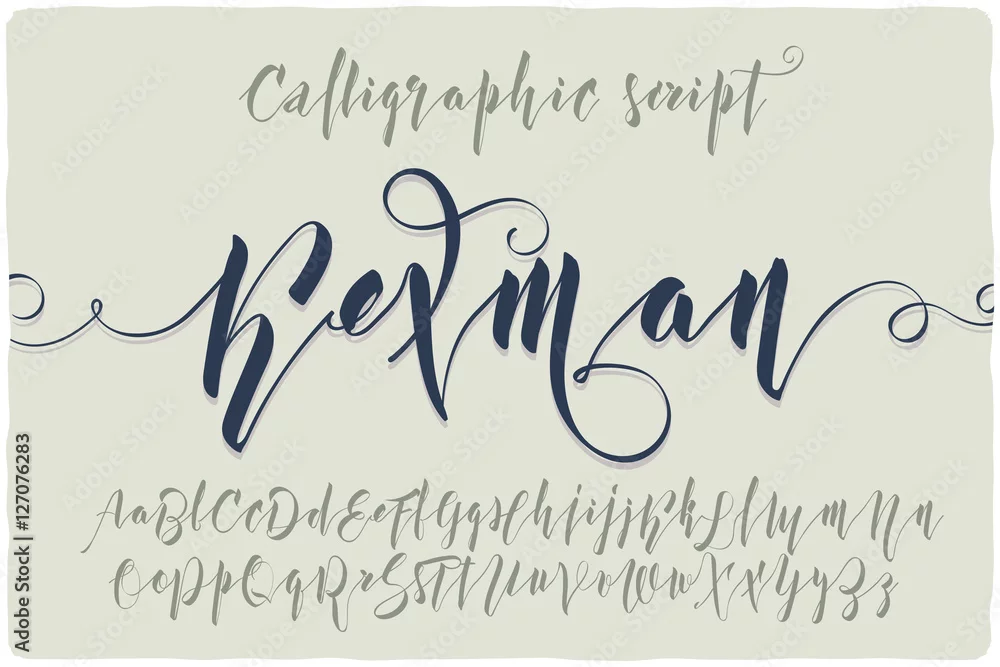 Calligraphic script
Kexman
AaBbCcDdEeFfGgHhIiJjKkLlMmNn
OoPpQqRrSsTtUuVvWwXxYyZz
Adobe Stock | #127076283
Adobe Stock